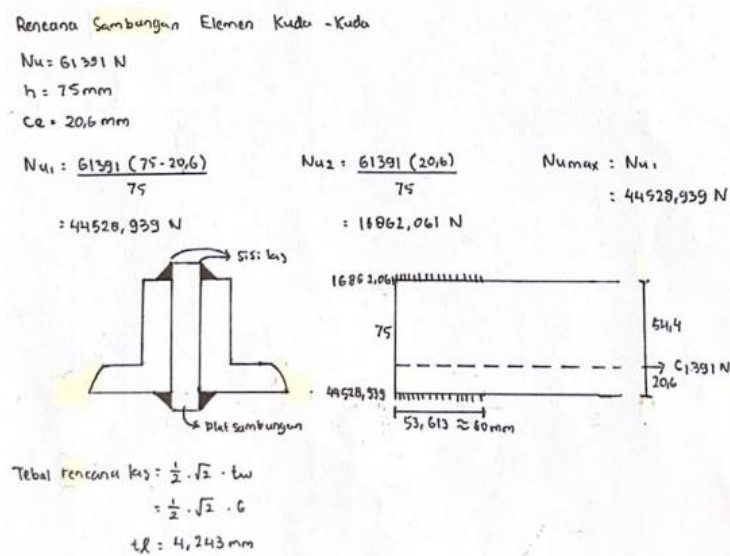 Rencana Sambungan Elemen Kuda-Kuda
Nu = 61391 N
h = 75mm
Ce = 20,6 mm
Nu₁ = 61391 (75-20,6)
75
= 44528,939 N
Nu₂ = 61391 (20,6)
75
= 16862,061 N
Numax = Nu₁
= 44528,939 N
sisi las
plat sambungan
16862,061
75
44528,939
53,613 ≈ 60mm
54,4
61391 N
20,6
Tebal rencana las = ½ . √2 . tw
= ½ . √2 . 6
tl = 4,243 mm